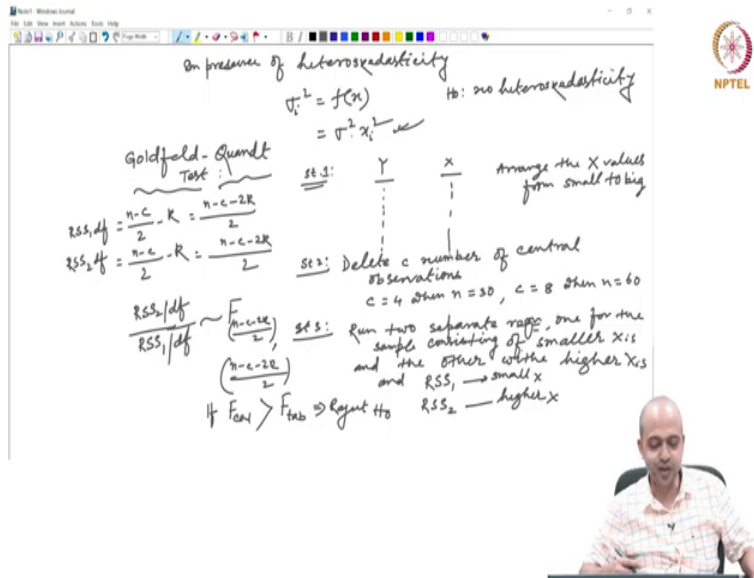 Note1 - Windows Journal
File Edit View Insert Actions Tools Help
Page Width
NPTEL
In presence of heteroskadasticity
σi² = f(x)
= σ² xi²
H0: no heteroskadasticity
Goldfeld-Quandt
Test:
RSS1 df = n-c/2 - K = n-c-2K/2
RSS2 df = n-c/2 - K = n-c-2K/2
RSS2/df / RSS1/df ~ F (n-c-2K/2), (n-c-2K/2)
If Fcal > Ftab ⇒ Reject H0
St 1: Y X
Arrange the X values
from small to big
St 2: Delete c number of central
observations
c = 4 when n = 30, c = 8 when n = 60
St 3: Run two separate regs, one for the
sample consisting of smaller Xis
and the other with the higher Xis
and RSS1 → small X
RSS2 — higher X